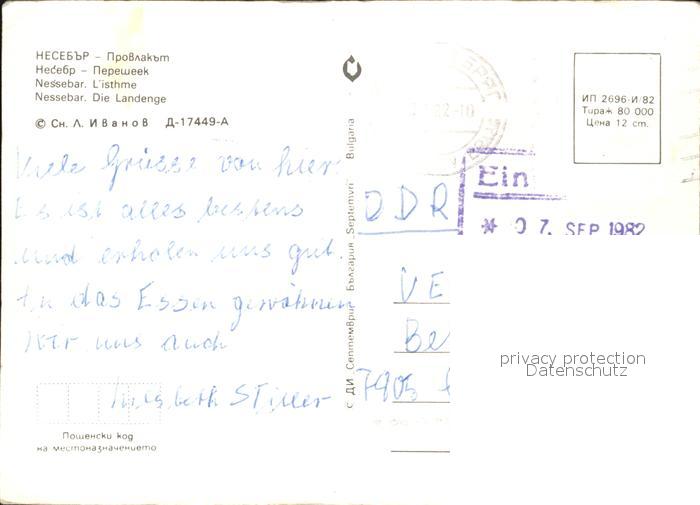 НЕСЕБЪР – Провлакът
Несебр – Перешеек
Nessebar. L'isthme
Nessebar. Die Landenge
© Сн. Л. Иванов Д-17449-А
Viele Grüsse von hier.
Es ist alles bestens
und erholen uns gut.
An das Essen gewöhnen
wir uns auch
Stiller
Пощенски код
на местоназначението
С ДИ „Септември“ България „Septemvri“ Bulgaria
ИП 2696-И/82
Тираж 80 000
Цена 12 ст.
Ein
* 07. SEP 1982
DDR
VE
Be
7905
privacy protection
Datenschutz